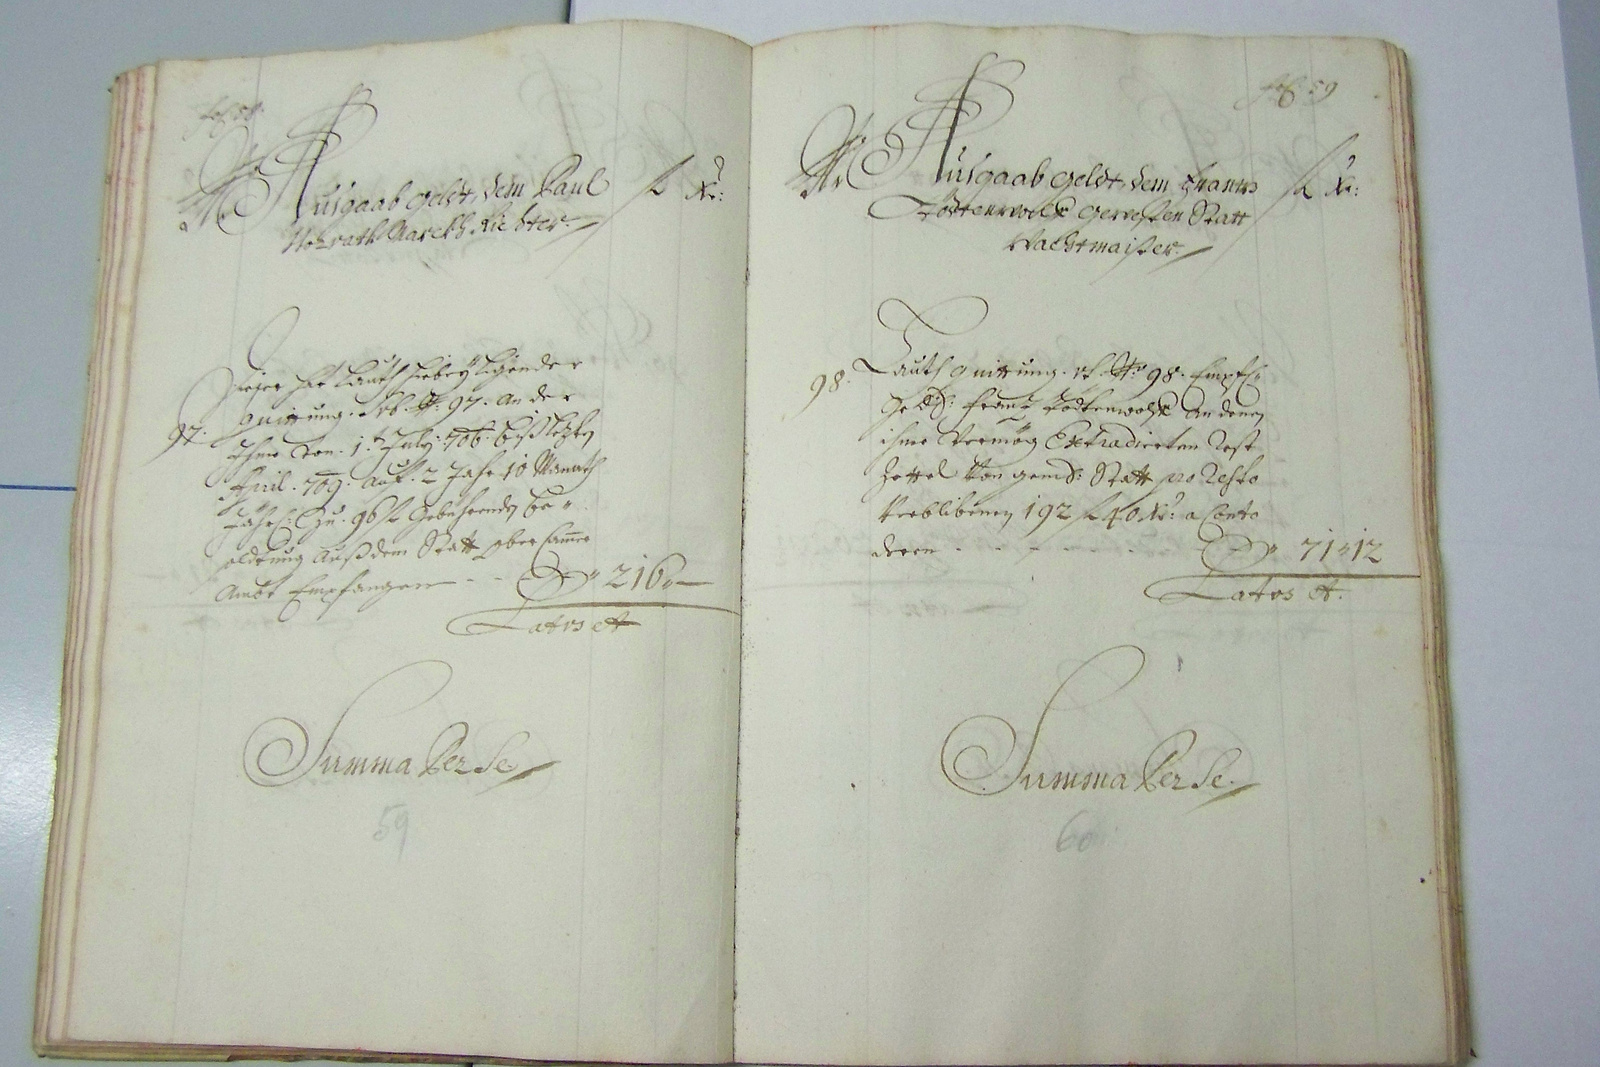 fol: 58.
Nr. Ausgaab geldt, dem Paul
Markh Richter
fl xr:
Dieser hat Lauth hiebey ligender
97. quittung. Sub. Nr: 97. an der
Ihme von. 1.t July: 706. biß letzten
April. 709. auf. 2 Jahr 10 Monath
Jährl: Zu. 96 fl gebührenden be=
soldtung auß dem Statt ober Cammer
Ambt Empfangen - - - 216 —
Latus et
Summa Per Se
59
fol: 59
Nr. Ausgaab geldt, dem Frantz
gewesten Statt
Wachtmaister
fl xr:
98. Lauth quittung. sub Nr: 98. Empfh=
Franz an denen
ihme vermög Extradierten Rest
Zettel von gemd: Statt pro Resto
verblibenen 192 fl 40 xr: a Conto
deren - - - - - - 71 12
Latus et.
Summa Per Se.
60